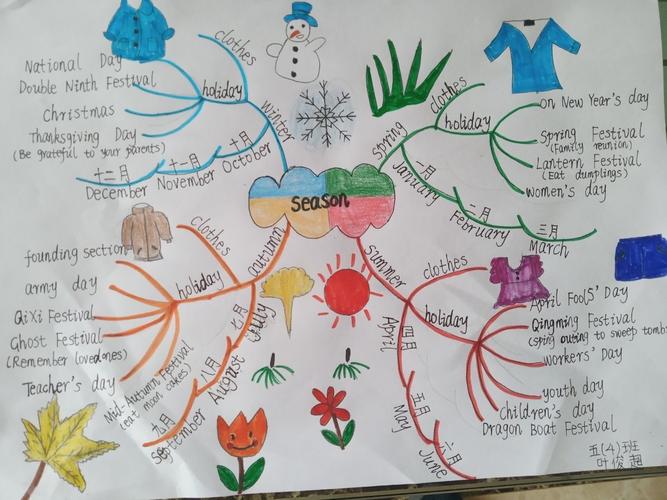 season
winter
clothes
holiday
National Day
Double Ninth Festival
Christmas
Thanksgiving Day
(Be grateful to your parents)
十月
October
十一月
November
十二月
December
spring
clothes
holiday
on New Year's day
Spring Festival
(Family reunion)
Lantern Festival
(Eat dumplings)
women's day
一月
January
二月
February
三月
March
autumn
clothes
holiday
founding section
army day
QiXi Festival
Ghost Festival
(Remember loved ones)
Teacher's day
Mid-Autumn Festival
(eat moon cakes)
七月
July
八月
August
九月
September
summer
clothes
holiday
April Fool's' Day
Qingming Festival
(sping outing to sweep tombs
workers' Day
youth day
Children's day
Dragon Boat Festival
四月
April
五月
May
六月
June
五(4)班
叶俊超